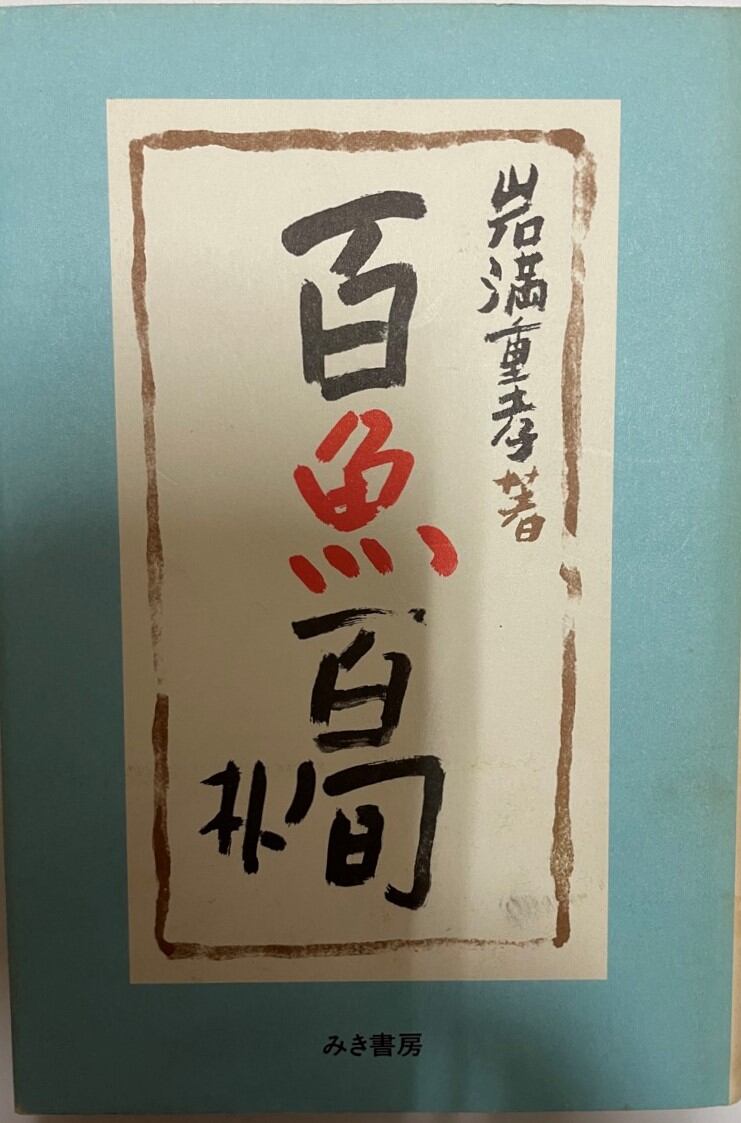 岩満重孝著
百魚百旬
みき書房